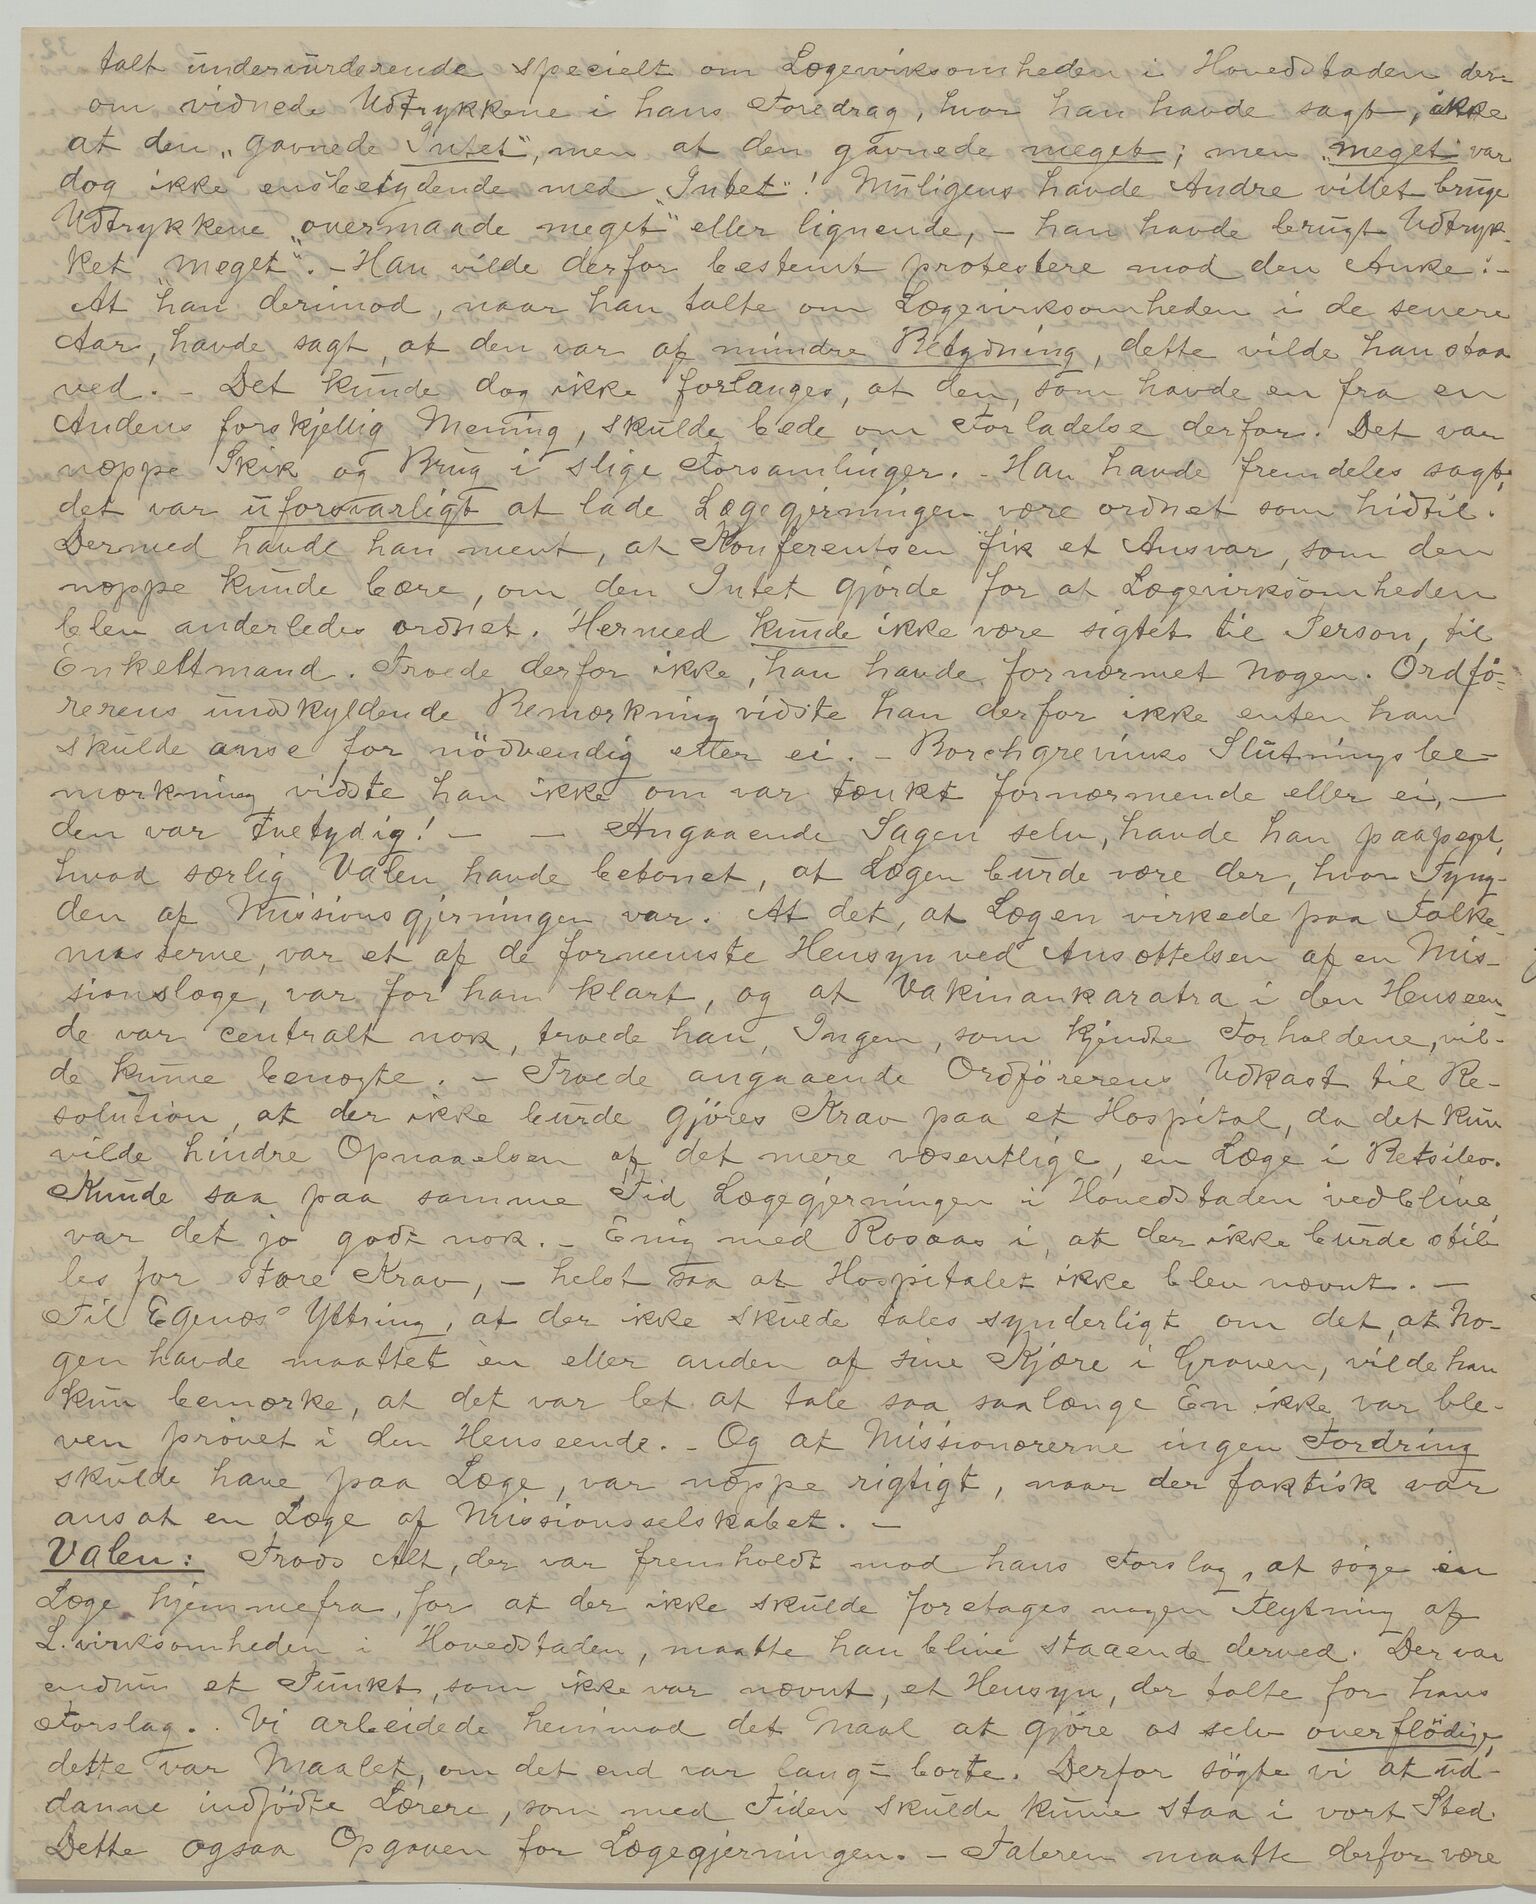 talt undervurderende specielt om Lægevirksomheden i Hovedstaden der-
om vidnede Udtrykkene i hans Foredrag, hvor han havde sagt, ikke
at den "gavnede Intet", men at den gavnede meget; men "meget" var
dog ikke ensbetydende med "Intet"! Muligens havde Andre villet bruge
Udtrykkene "overmaade meget" eller lignende, – han havde brugt Udtryk-
ket "meget". – Han vilde derfor bestemt protestere mod den Anke. –
At han derimod, naar han talte om Lægevirksomheden i de senere
Aar, havde sagt, at den var af mindre Betydning, dette vilde han staa
ved. – Det kunde dog ikke forlanges, at den, som havde en fra en
Andens forskjellig Mening, skulde bede om Forladelse derfor. Det var
neppe Skik og Brug i slige Forsamlinger. – Han havde fremdeles sagt,
det var uforsvarligt at lade Lægegjerningen være ordnet som hidtil.
Dermed havde han ment, at Konferentsen fik et Ansvar, som den
neppe kunde bære, om den Intet gjorde for at Lægevirksomheden
blev anderledes ordnet. Hermed kunde ikke være sigtet til Person, til
Enkeltmand. Troede derfor ikke, han havde fornærmet Nogen. Ordfö-
rerens undskyldende Bemærkning vidste han derfor ikke enten han
skulde anse for nödvendig eller ei. – Borchgrevinks Slutningsbe-
mærkning vidste han ikke om var tænkt fornærmende eller ei, –
den var tvetydig! – – Angaaende Sagen selv, havde han paapegt,
hvad særlig Valen havde betonet, at Lægen burde være der, hvor Tyng-
den af Missionsgjerningen var. At det, at Lægen virkede paa Folke-
masserne, var et af de fornemste Hensyn ved Ansættelsen af en Mis-
sionslæge, var for ham klart, og at Vakinankaratra i den Henseen-
de var centralt nok, troede han, Ingen, som kjendte Forholdene, vil-
de kunne benægte. – Troede angaaende Ordförerens Udkast til Re-
solution, at der ikke burde gjöres Krav paa et Hospital, da det kun
vilde hindre Opnaaelsen af det mere væsentlige, en Læge i Betsileo.
Kunde saa paa samme Tid Lægegjerningen i Hovedstaden vedblive,
var det jo godt nok. – Enig med Rosaas i, at der ikke burde stil-
les for store Krav, – helst saa at Hospitalet ikke blev nævnt. –
Til Egenæs' Yttring, at der ikke skulde tales synderligt om det, at No-
gen havde maattet en eller anden af sine Kjære i Graven, vilde han
kun bemærke, at det var let at tale saa saalænge En ikke var ble-
ven prövet i den Henseende. – Og at Missionærerne ingen Fordring
skulde have paa Læge, var neppe rigtigt, naar der faktisk var
ansat en Læge af Missionsselskabet. –
Valen: Trods Alt, der var fremholdt mod hans Forslag, at söge en
Læge hjemmefra, for at der ikke skulde foretages nogen Flytning af
L.virksomheden i Hovedstaden, maatte han blive staaende derved. Der var
endnu et Punkt, som ikke var nævnt, et Hensyn, der talte for hans
Forslag. Vi arbeidede henimod det Maal at gjöre os selv overflödige,
dette var Maalet, om det end var langt borte. Derfor sögte vi at ud-
danne indfödte Lærere, som med Tiden skulde kunne staa i vort Sted.
Dette ogsaa Opgaven for Lægegjerningen. – Taleren maatte derfor være